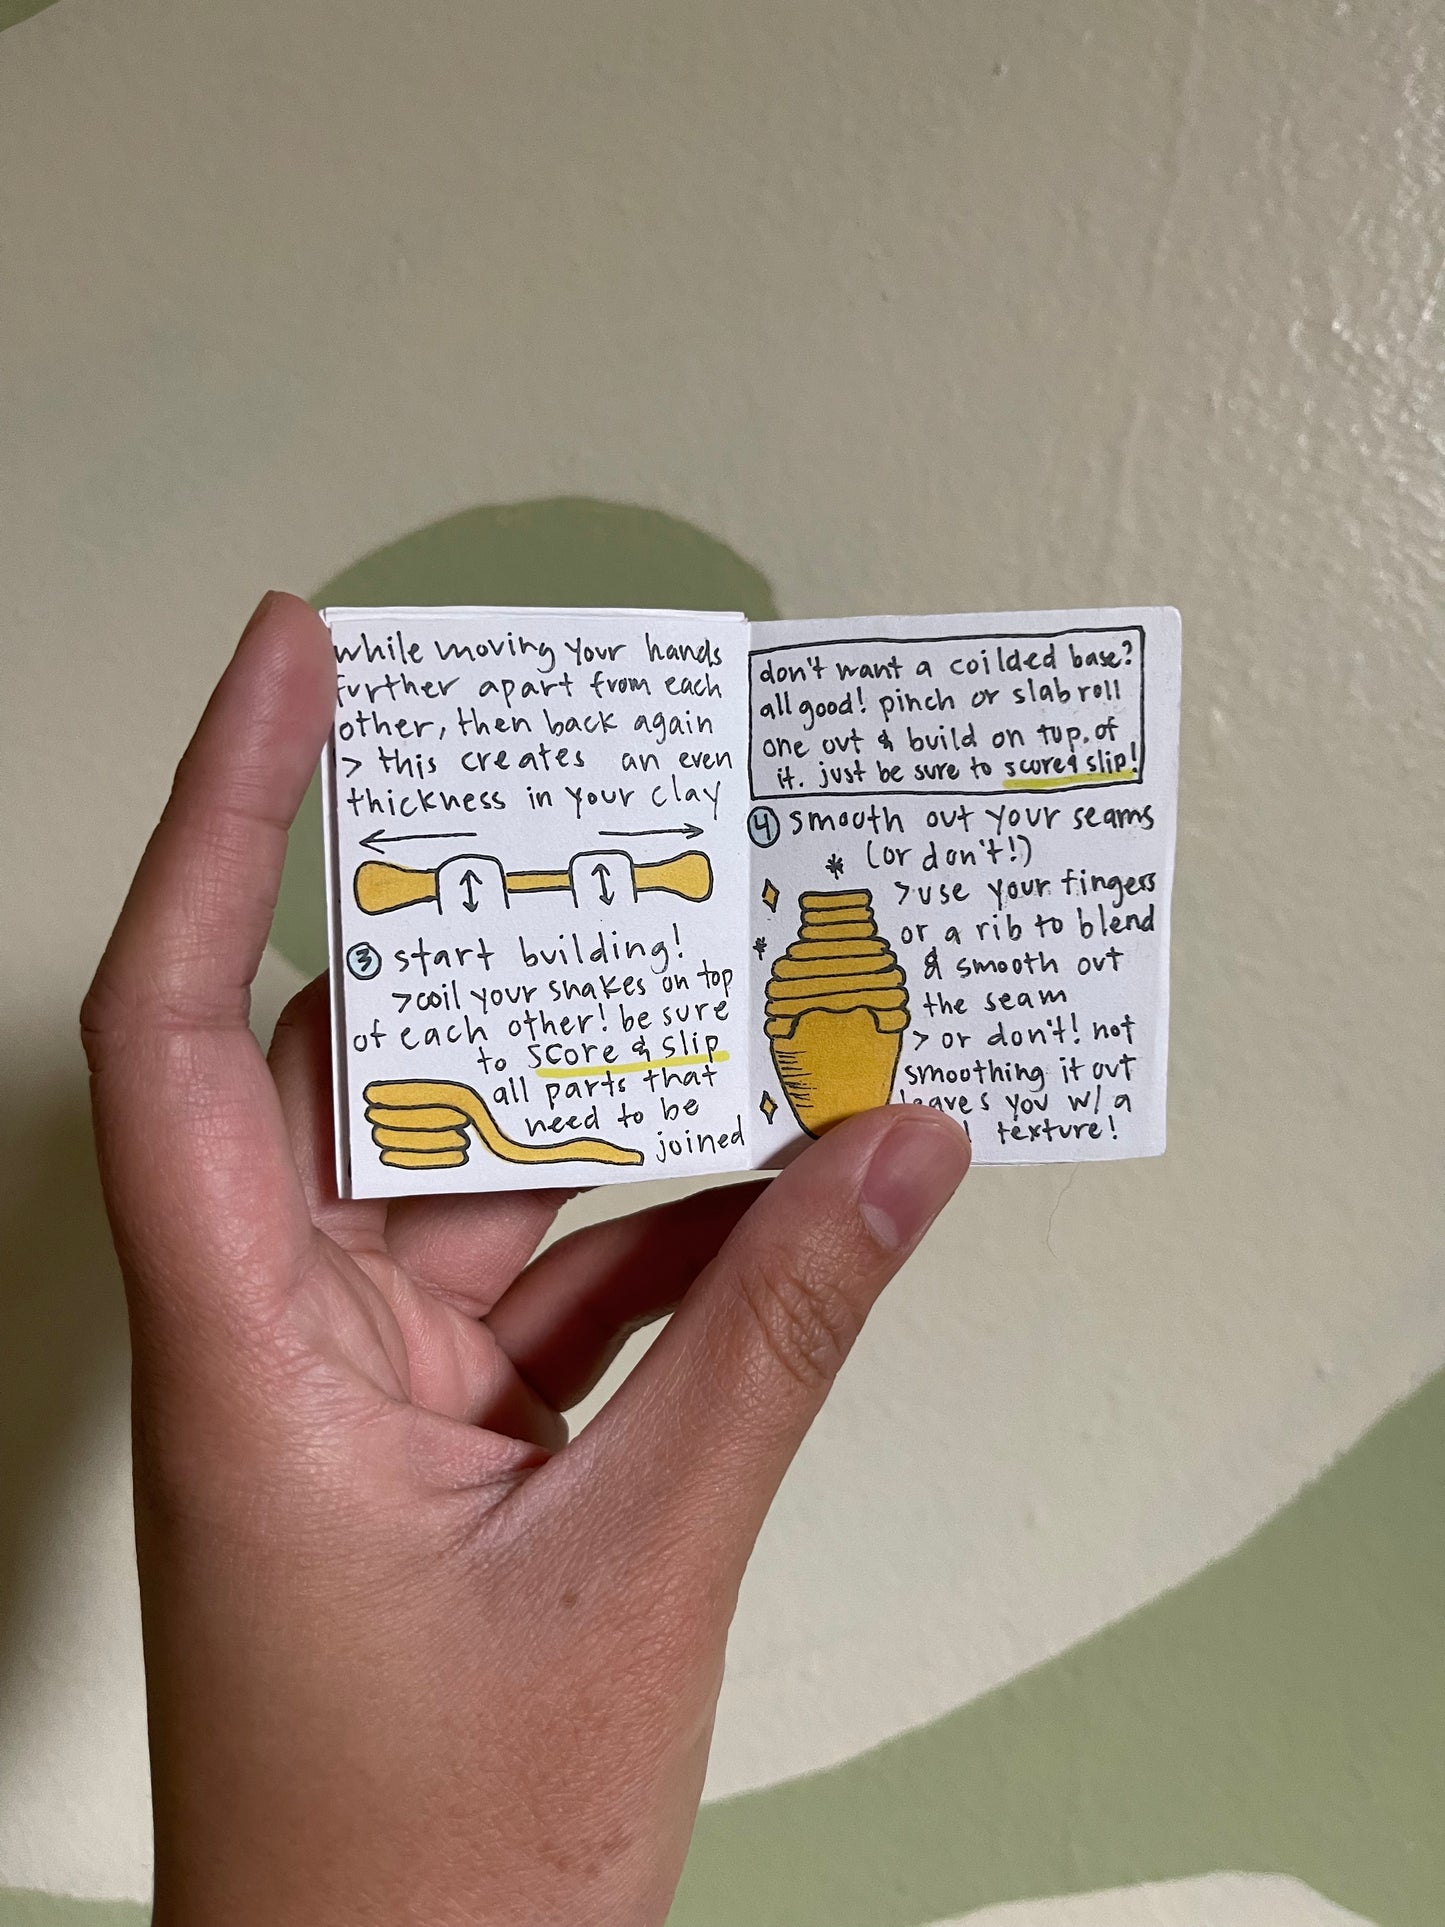 while moving your hands
further apart from each
other, then back again
> this creates an even
thickness in your clay
3 start building!
> coil your snakes on top
of each other! be sure
to score & slip
all parts that
need to be
joined
don't want a coilded base?
all good! pinch or slab roll
one out & build on top of
it. just be sure to score & slip!
4 smooth out your seams
(or don't!)
> use your fingers
or a rib to blend
& smooth out
the seam
> or don't! not
smoothing it out
leaves you w/ a
texture!